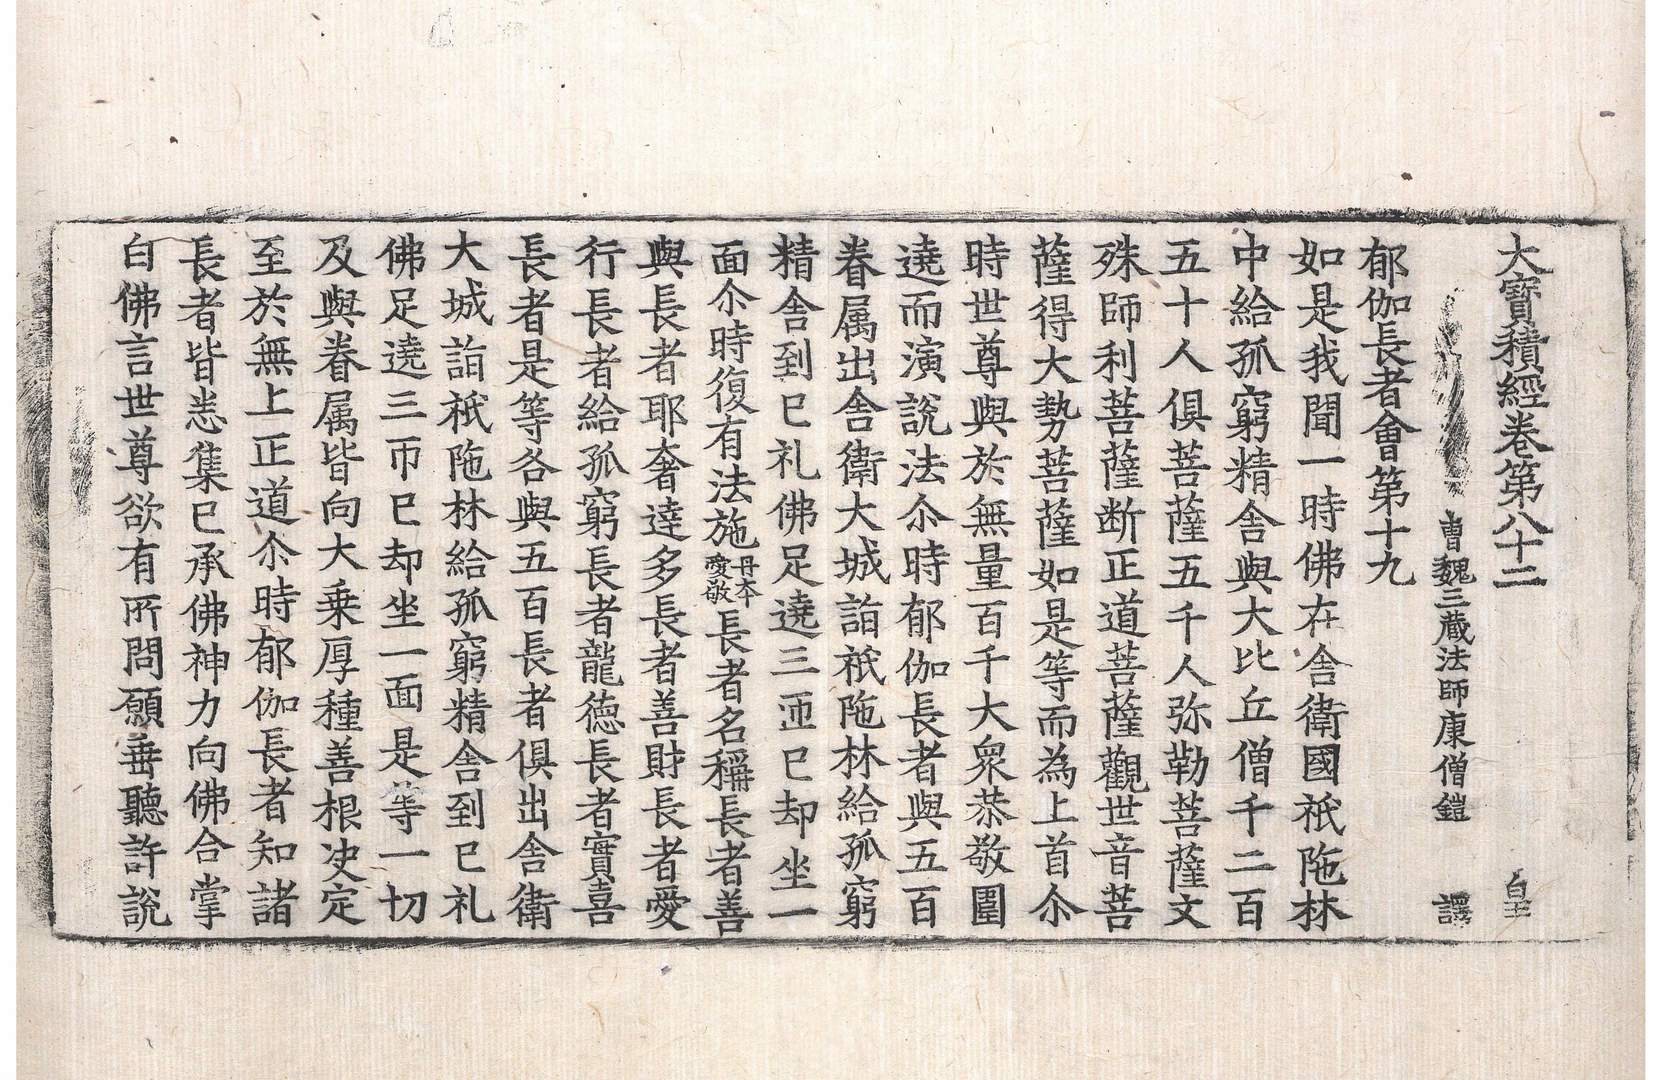 大寶積經卷第八十二 皇
曹魏三蔵法師康僧鎧 譯
郁伽長者會第十九
如是我聞一時佛在舎衛國祇陁林
中給孤窮精舎與大比丘僧千二百
五十人俱菩薩五千人弥勒菩薩文
殊師利菩薩断正道菩薩觀世音菩
薩得大勢菩薩如是等而為上首尒
時世尊與於無量百千大衆恭敬圍
遶而演說法尒時郁伽長者與五百
眷属出舎衛大城詣祇陁林給孤窮
精舎到已礼佛足遶三迊已却坐一
面尒時復有法施丹本愛敬長者名稱長者善
與長者耶奢達多長者善財長者愛
行長者給孤窮長者龍德長者實喜
長者是等各與五百長者俱出舎衛
大城詣祇陁林給孤窮精舎到已礼
佛足遶三帀已却坐一面是等一切
及與眷属皆向大乗厚種善根决定
至於無上正道尒時郁伽長者知諸
長者皆悉集已承佛神力向佛合掌
白佛言世尊欲有所問願垂聽許說